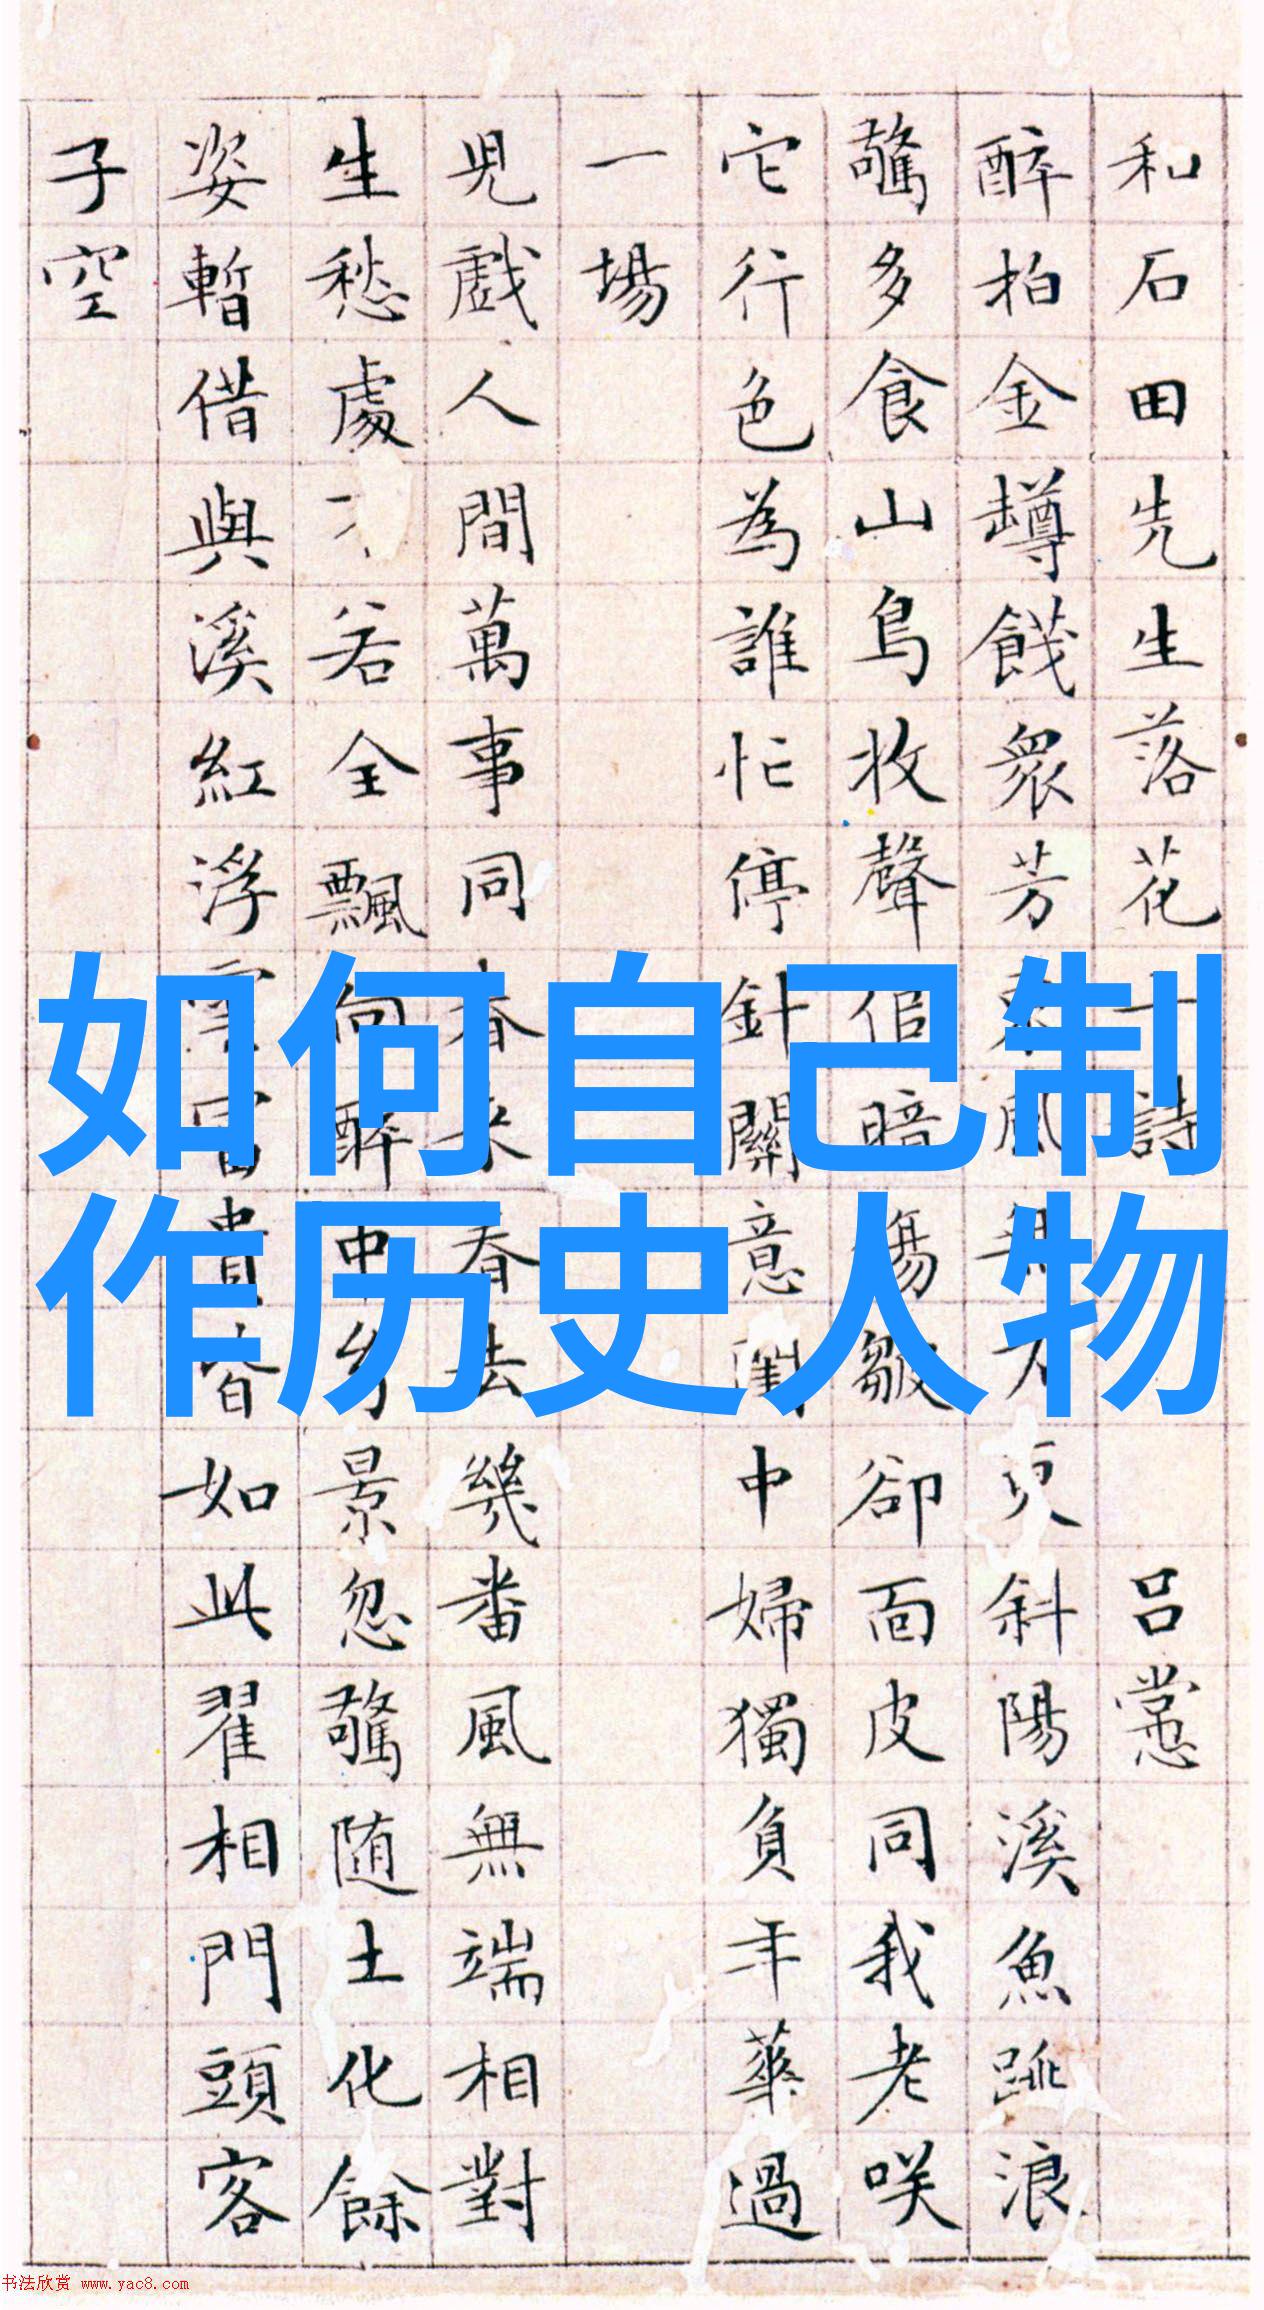 和石田先生落花十詩 呂㦂
醉拍金罇餞衆芳東風無力更斜陽溪魚跳浪
驚多食山鳥收聲倍暗傷皺卻面皮同我老咲
它行色為誰忙停針關意閨中婦獨負年華過
一場
兒戲人間萬事同春來春去幾番風無端相對
生愁處若全飄向醉中景忽驚随土化餘
姿暫借與溪紅浮雲富貴皆如此翟相門頭客
子空
如何自己制
作历史人物
书法欣赏 www.yac8.com